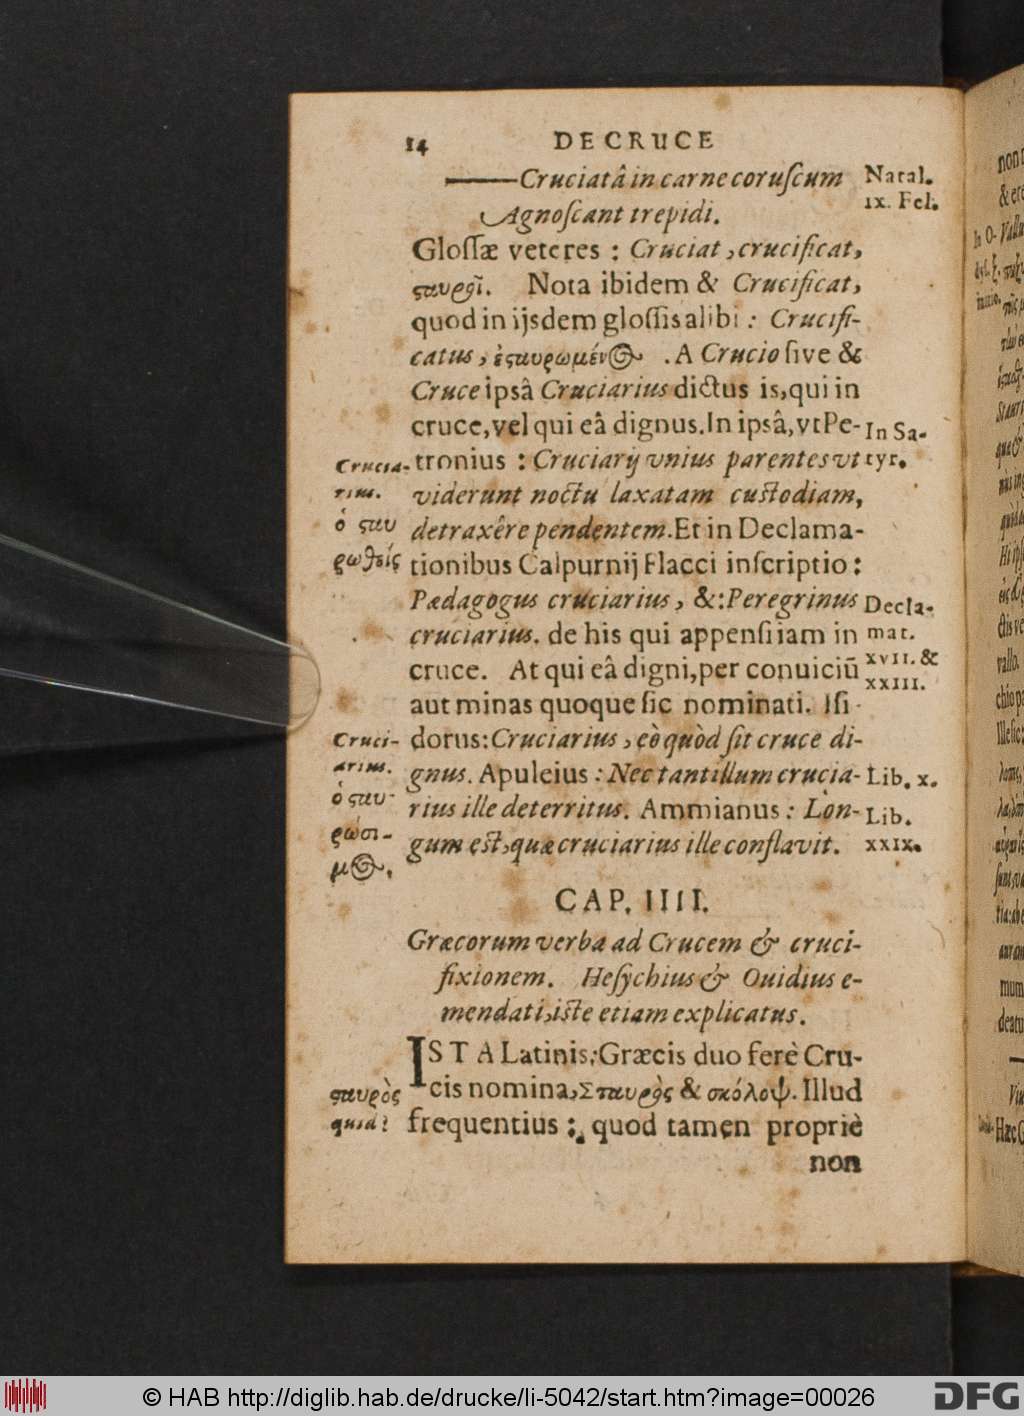 14 DE CRUCE
——Cruciatâ in carne coruſcum
Agnoſcant trepidi.
Natal.
IX. Fel.
Gloſſæ veteres : Cruciat, crucificat,
ϛαυροῖ. Nota ibidem & Crucificat,
quod in ijsdem gloſſis alibi : Crucifi-
catus, ἐϛαυρωμένος. A Crucio ſive &
Cruce ipsâ Cruciarius dictus is, qui in
cruce, vel qui eâ dignus. In ipsâ, vt Pe-
In Sa-
tyr.
Crucia-
rius.
ὁ ϛαυ
ρωθείς
tronius : Cruciarij vnius parentes vt
viderunt noctu laxatam custodiam,
detraxêre pendentem. Et in Declama-
tionibus Calpurnij Flacci inſcriptio :
Pædagogus cruciarius, &: Peregrinus
cruciarius. de his qui appenſi iam in
cruce. At qui eâ digni, per conuiciũ
Decla-
mat.
XVII. &
XXIII.
aut minas quoque ſic nominati. Iſi-
dorus: Cruciarius, eò quòd ſit cruce di-
gnus. Apuleius : Nec tantillum crucia-
rius ille deterritus. Ammianus : Lon-
gum est, quæ cruciarius ille conflavit.
Cruci-
arius.
ὁ ϛαυ-
ρώσι-
μος.
Lib. x.
Lib.
xxix.
CAP. IIII.
Græcorum verba ad Crucem & cruci-
fixionem. Heſychius & Ouidius e-
mendati, iste etiam explicatus.
ISTA Latinis: Græcis duo ferè Cru-
cis nomina, Σταυρὸς & σκόλοψ. Illud
frequentius : quod tamen propriè
ϛαυρὸς
quid?
non
In O-
initio.
© HAB http://diglib.hab.de/drucke/li-5042/start.htm?image=00026
DFG